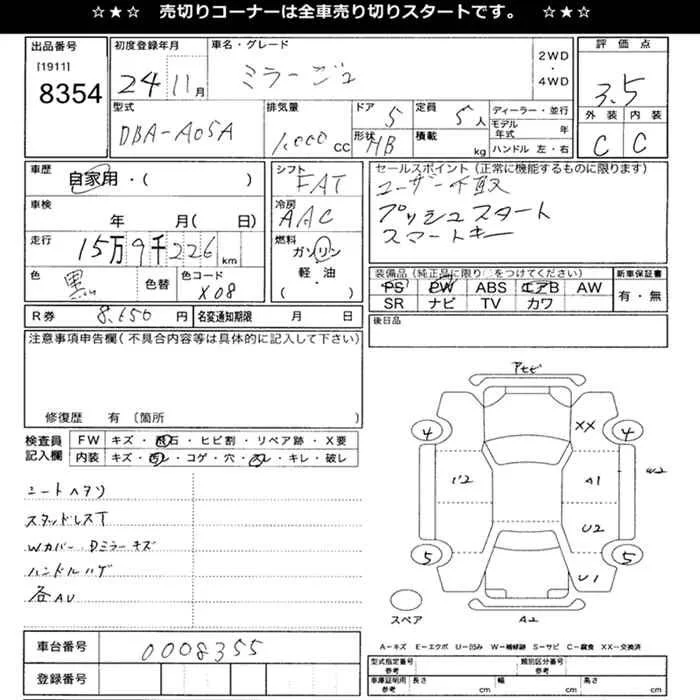 ☆★☆ 売切りコーナーは全車売り切りスタートです。 ☆★☆
出品番号 [1911] 8354
初度登録年月 24 11月
車名・グレード ミラージュ
2WD・4WD
評価点 3.5
外装 C 内装 C
型式 DBA-A05A
排気量 1,000 CC
ドア 5 形状 HB
定員 5人 積載 kg
ディーラー・並行
モデル年式 年
ハンドル 左・右
車歴 自家用・( )
車検 年 月( 日)
走行 15万9千226km
色 黒 色替 色コード X08
シフト FAT
冷房 AAC
燃料 ガソリン 軽・油 ( )
セールスポイント(正常に機能するものに限ります)
ユーザー下取
プッシュスタート
スマートキー
装備品(純正品に限り○をつけてください)
PS PW ABS エアB AW
SR ナビ TV カワ
新車保証書 有・無
R券 8,650円 名変通知期限 月 日
後日品
注意事項申告欄(不具合内容等は具体的に記入して下さい)
修復歴 有 (箇所 )
検査員記入欄
FW キズ・飛石・ヒビ割・リペア跡・X要
内装 キズ・ ・コゲ・穴・ ・キレ・破レ
シートヘタリ
スタッドレスT
Wカバー・Dミラーキズ
ハンドルハゲ
各AU
アセビ
4 XX 4
U2 A1 W2
U2
5 U1 5
スペア A2
車台番号 0008355
登録番号
A−キズ E−エクボ U−凹み W−補修跡 S−サビ C−腐食 XX−交換済
型式指定番号 参考 類別区分番号 参考
車庫証明 参考 長さ cm 幅 cm 高さ cm